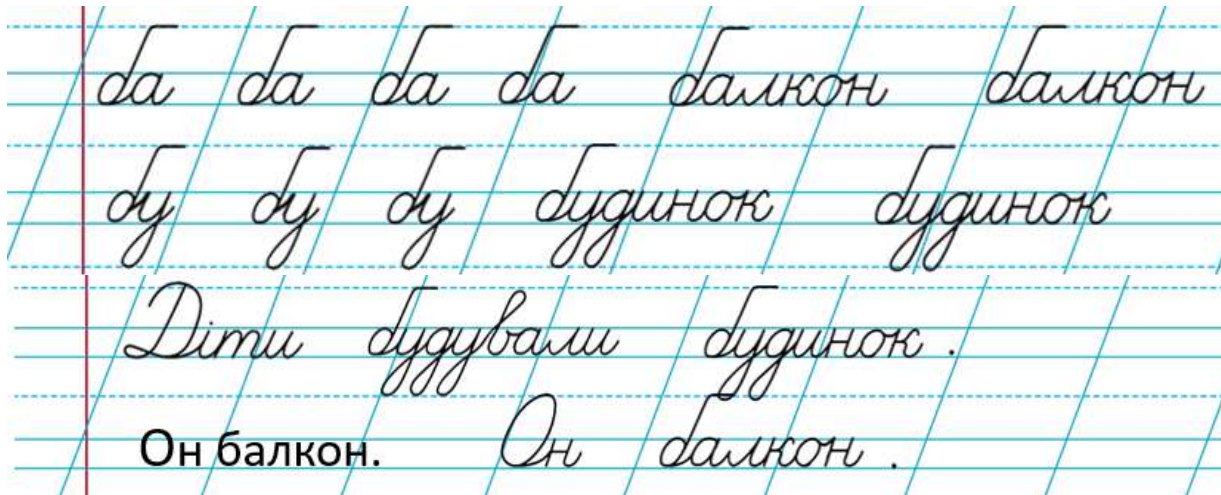 ба ба ба ба балкон балкон
бу бу бу будинок будинок
Діти будували будинок .
Он балкон. Он балкон .